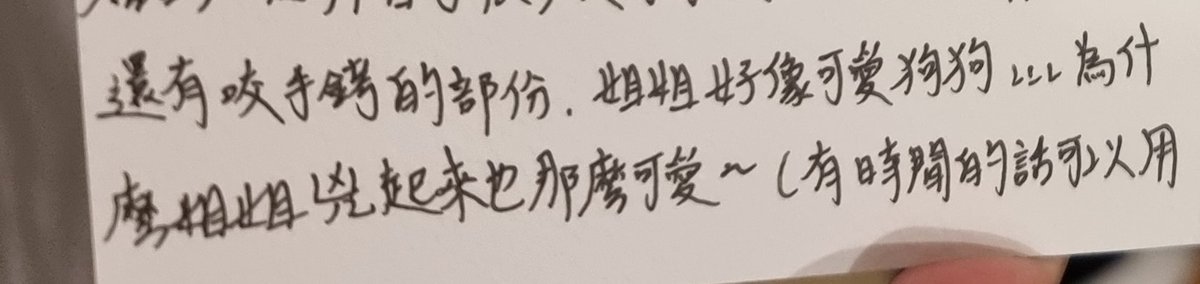 還有咬手銬的部份.姐姐好像可愛狗狗...為什
麼姐姐兇起來也那麼可愛~(有時間的話可以用